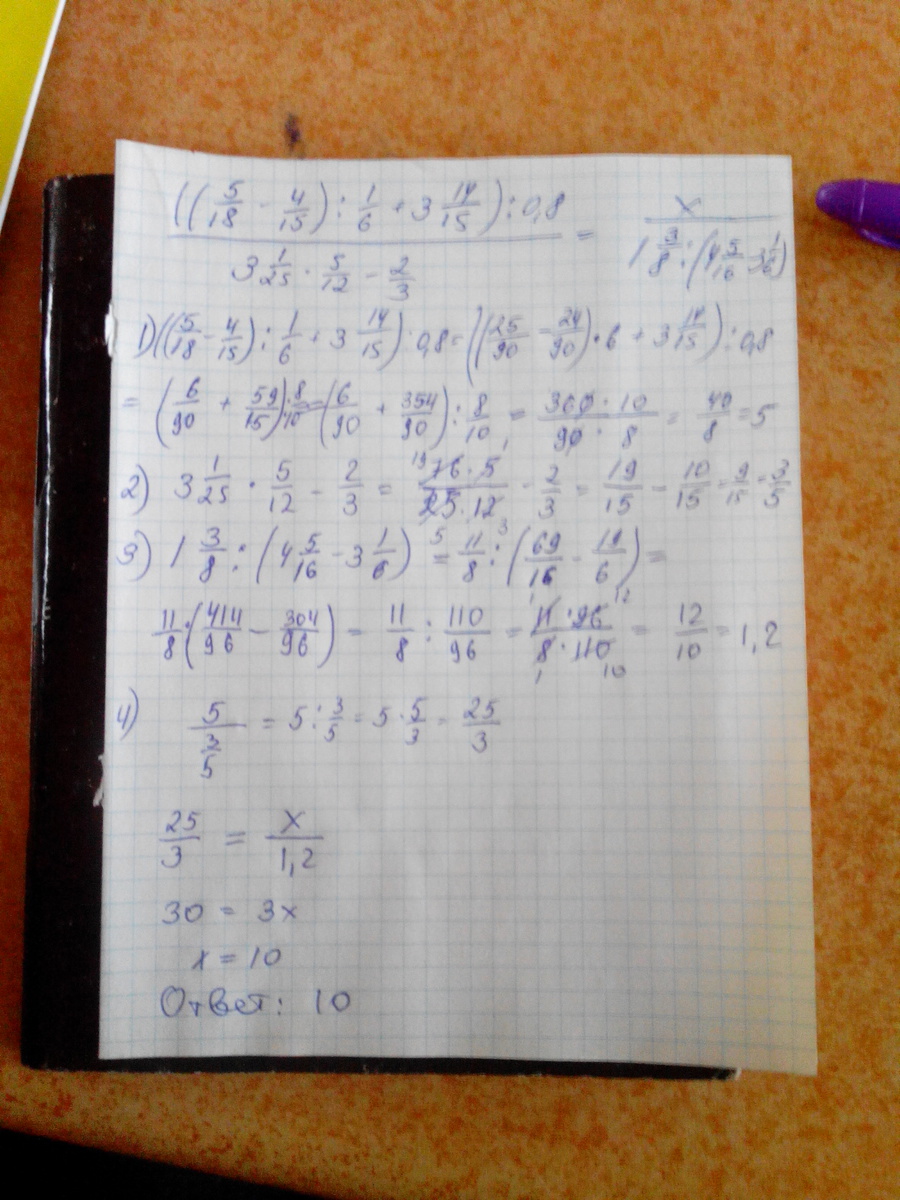 ((5/18 - 4/15) : 1/6 + 3 14/15) : 0,8 / 3 1/25 · 5/12 - 2/3 = x / 1 3/8 : (4 5/16 - 3 1/6)
1) ((5/18 - 4/15) : 1/6 + 3 14/15) · 0,8 = ((25/90 - 24/90) · 6 + 3 14/15) : 0,8
= (6/90 + 59/15) : 8/10 = (6/90 + 354/90) : 8/10 = 360 · 10 / 90 · 8 = 40/8 = 5
2) 3 1/25 · 5/12 - 2/3 = 76 · 5 / 25 · 12 - 2/3 = 19/15 - 10/15 = 9/15 = 3/5
3) 1 3/8 : (4 5/16 - 3 1/6) = 11/8 : (69/16 - 19/6) =
11/8 : (414/96 - 304/96) = 11/8 : 110/96 = 11 · 96 / 8 · 110 = 12/10 = 1,2
4) 5 / 3/5 = 5 : 3/5 = 5 · 5/3 = 25/3
25/3 = x/1,2
30 = 3x
x = 10
Ответ: 10